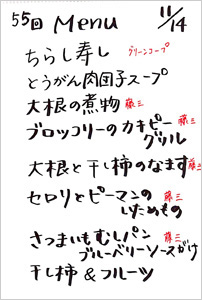 55回 Menu 11/14
ちらし寿し グリーンコープ
とうがん肉団子スープ
大根の煮物 藤三
ブロッコリーのカキピー 藤三
グリル
大根と干し柿のなます 藤三
セロリとピーマンの 藤三
いためもの
さつまいもむしパン 藤三
ブルーベリーソースがけ
干し柿&フルーツ